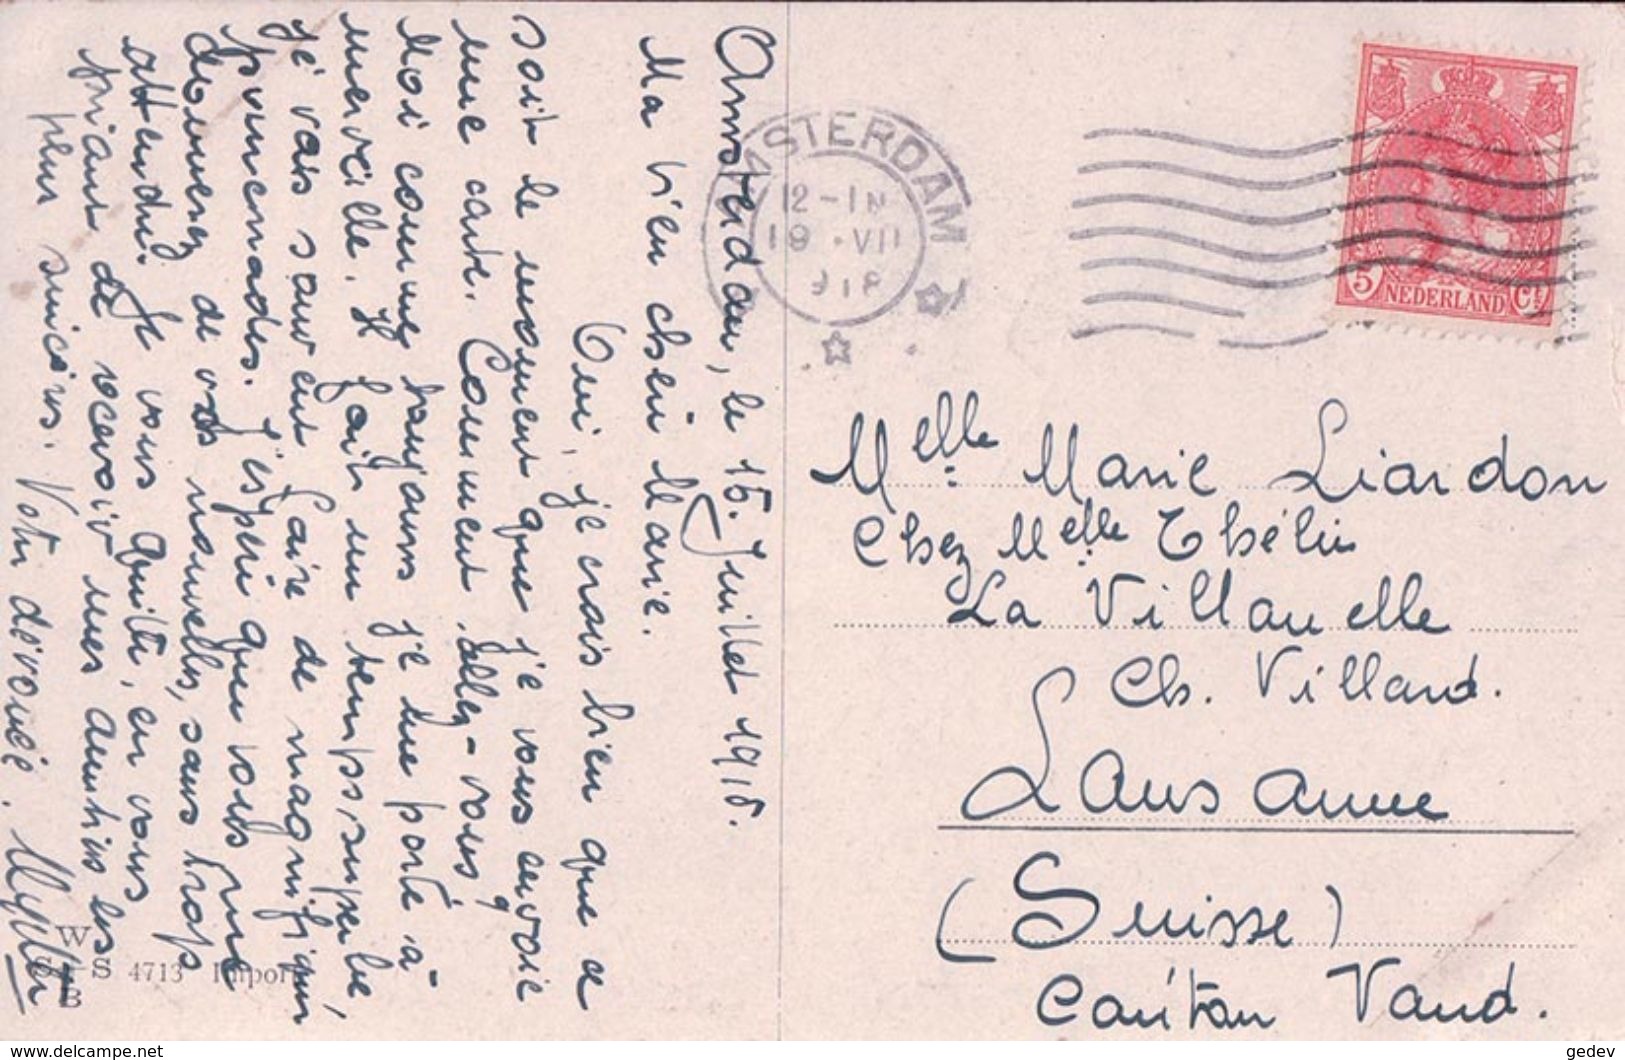 Amsterdam, le 15. Juillet 1918.
Ma bien chère Marie.
Oui, je crois bien que ce
soit le moment que je vous envoie
une carte. Comment allez-vous?
Moi comme toujours je me porte à
merveille. Il fait un temps superbe,
je vais souvent faire de magnifiques
promenades. J'espère que vous me
donnerez de vos nouvelles, sans trop
attendre. Je vous quitte, en vous
priant de recevoir mes amitiés les
plus sincères. Votre dévouée.
W
S S
B
4713 Import
AMSTERDAM
12-1N
19 .VII
918
5 NEDERLAND Ct
Melle Marie Liardon
Chez Melle Thélin
La Villanelle
Ch. Villard.
Lausanne
(Suisse)
Canton Vaud.
gedev